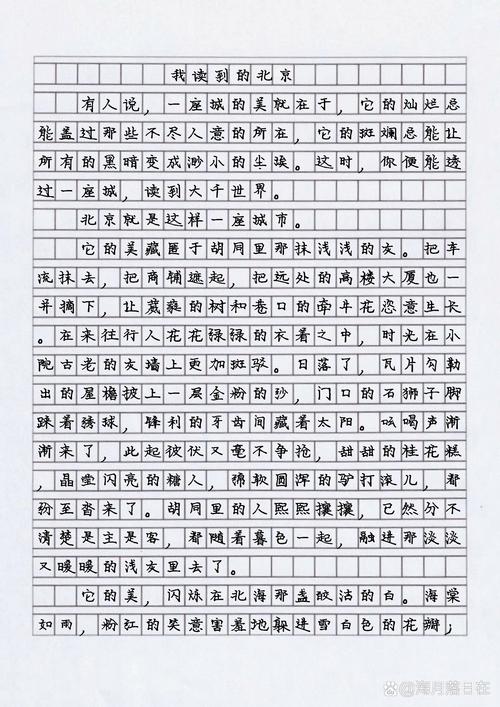 我读到的北京
有人说，一座城的美就在于，它的灿烂总
能盖过那些不尽人意的所在，它的斑斓总能让
所有的黑暗变成渺小的尘埃。这时，你便能透
过一座城，读到大千世界。
北京就是这样一座城市。
它的美藏匿于胡同里那抹浅浅的灰。把车
流抹去，把商铺遮起，把远处的高楼大厦也一
并摘下，让葳蕤的树和巷口的牵牛花恣意生长
。在来往行人花花绿绿的衣着之中，时光在小
院古老的灰墙上更加斑驳。日落了，瓦片勾勒
出的屋檐披上一层金粉的纱，门口的石狮子脚
踩着绣球，锋利的牙齿间藏着太阳。吆喝声渐
渐来了，此起彼伏又毫不争抢，甜甜的桂花糕
，晶莹闪亮的糖人，绵软圆浑的驴打滚儿，都
纷至沓来了。胡同里的人熙熙攘攘，已然分不
清楚是主是客，都随着暮色一起，融进那淡淡
又暖暖的浅灰里去了。
它的美，闪烁在北海那盏皎洁的白。海棠
如雨，粉红的笑意害羞地躲进雪白色的花瓣；
海月落日在